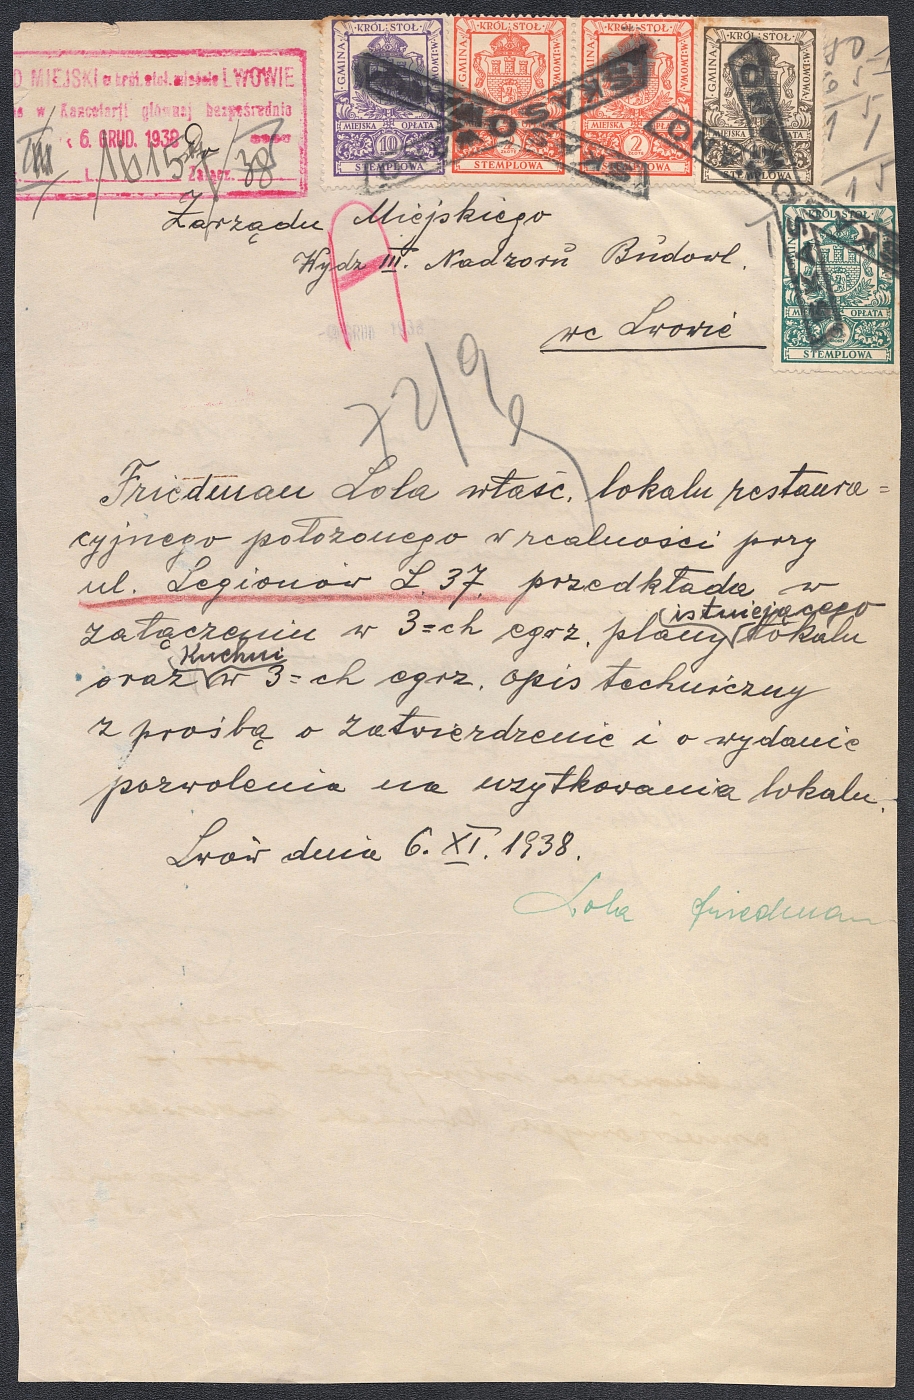 MIEJSKI w król. stoł. mieście LWOWIE
w Kancelarji głównej bezpośrednio
6. GRUD. 1938
1615 38
Załącz.
GMINA KRÓL. STOŁ. M. LWOWA
MIEJSKA OPŁATA
10
STEMPLOWA
GMINA KRÓL. STOŁ. M. LWOWA
MIEJSKA OPŁATA
2
STEMPLOWA
GMINA KRÓL. STOŁ. M. LWOWA
MIEJSKA OPŁATA
2 ZŁOTE
STEMPLOWA
KRÓL. STOŁ. M. LWOWA
MIEJSKA OPŁATA
STEMPLOWA
KRÓL. STOŁ.
OPŁATA
STEMPLOWA
SKASOWANO
Zarządu Miejskiego
Wydz III. Nadzoru Budowl.
we Lwowie
GRUD 1938
Friedman Lola właśc. lokalu restaura=
cyjnego położonego w realności przy
ul. Legionów L. 37. przedkłada w
załączeniu w 3=ch egrz. plany istniejącego lokalu
oraz Kuchni w 3=ch egrz. opis techniczny
z prośbą o zatwierdzenie i o wydanie
pozwolenia na użytkowania lokalu.
Lwów dnia 6. XI. 1938.
Lola Friedman